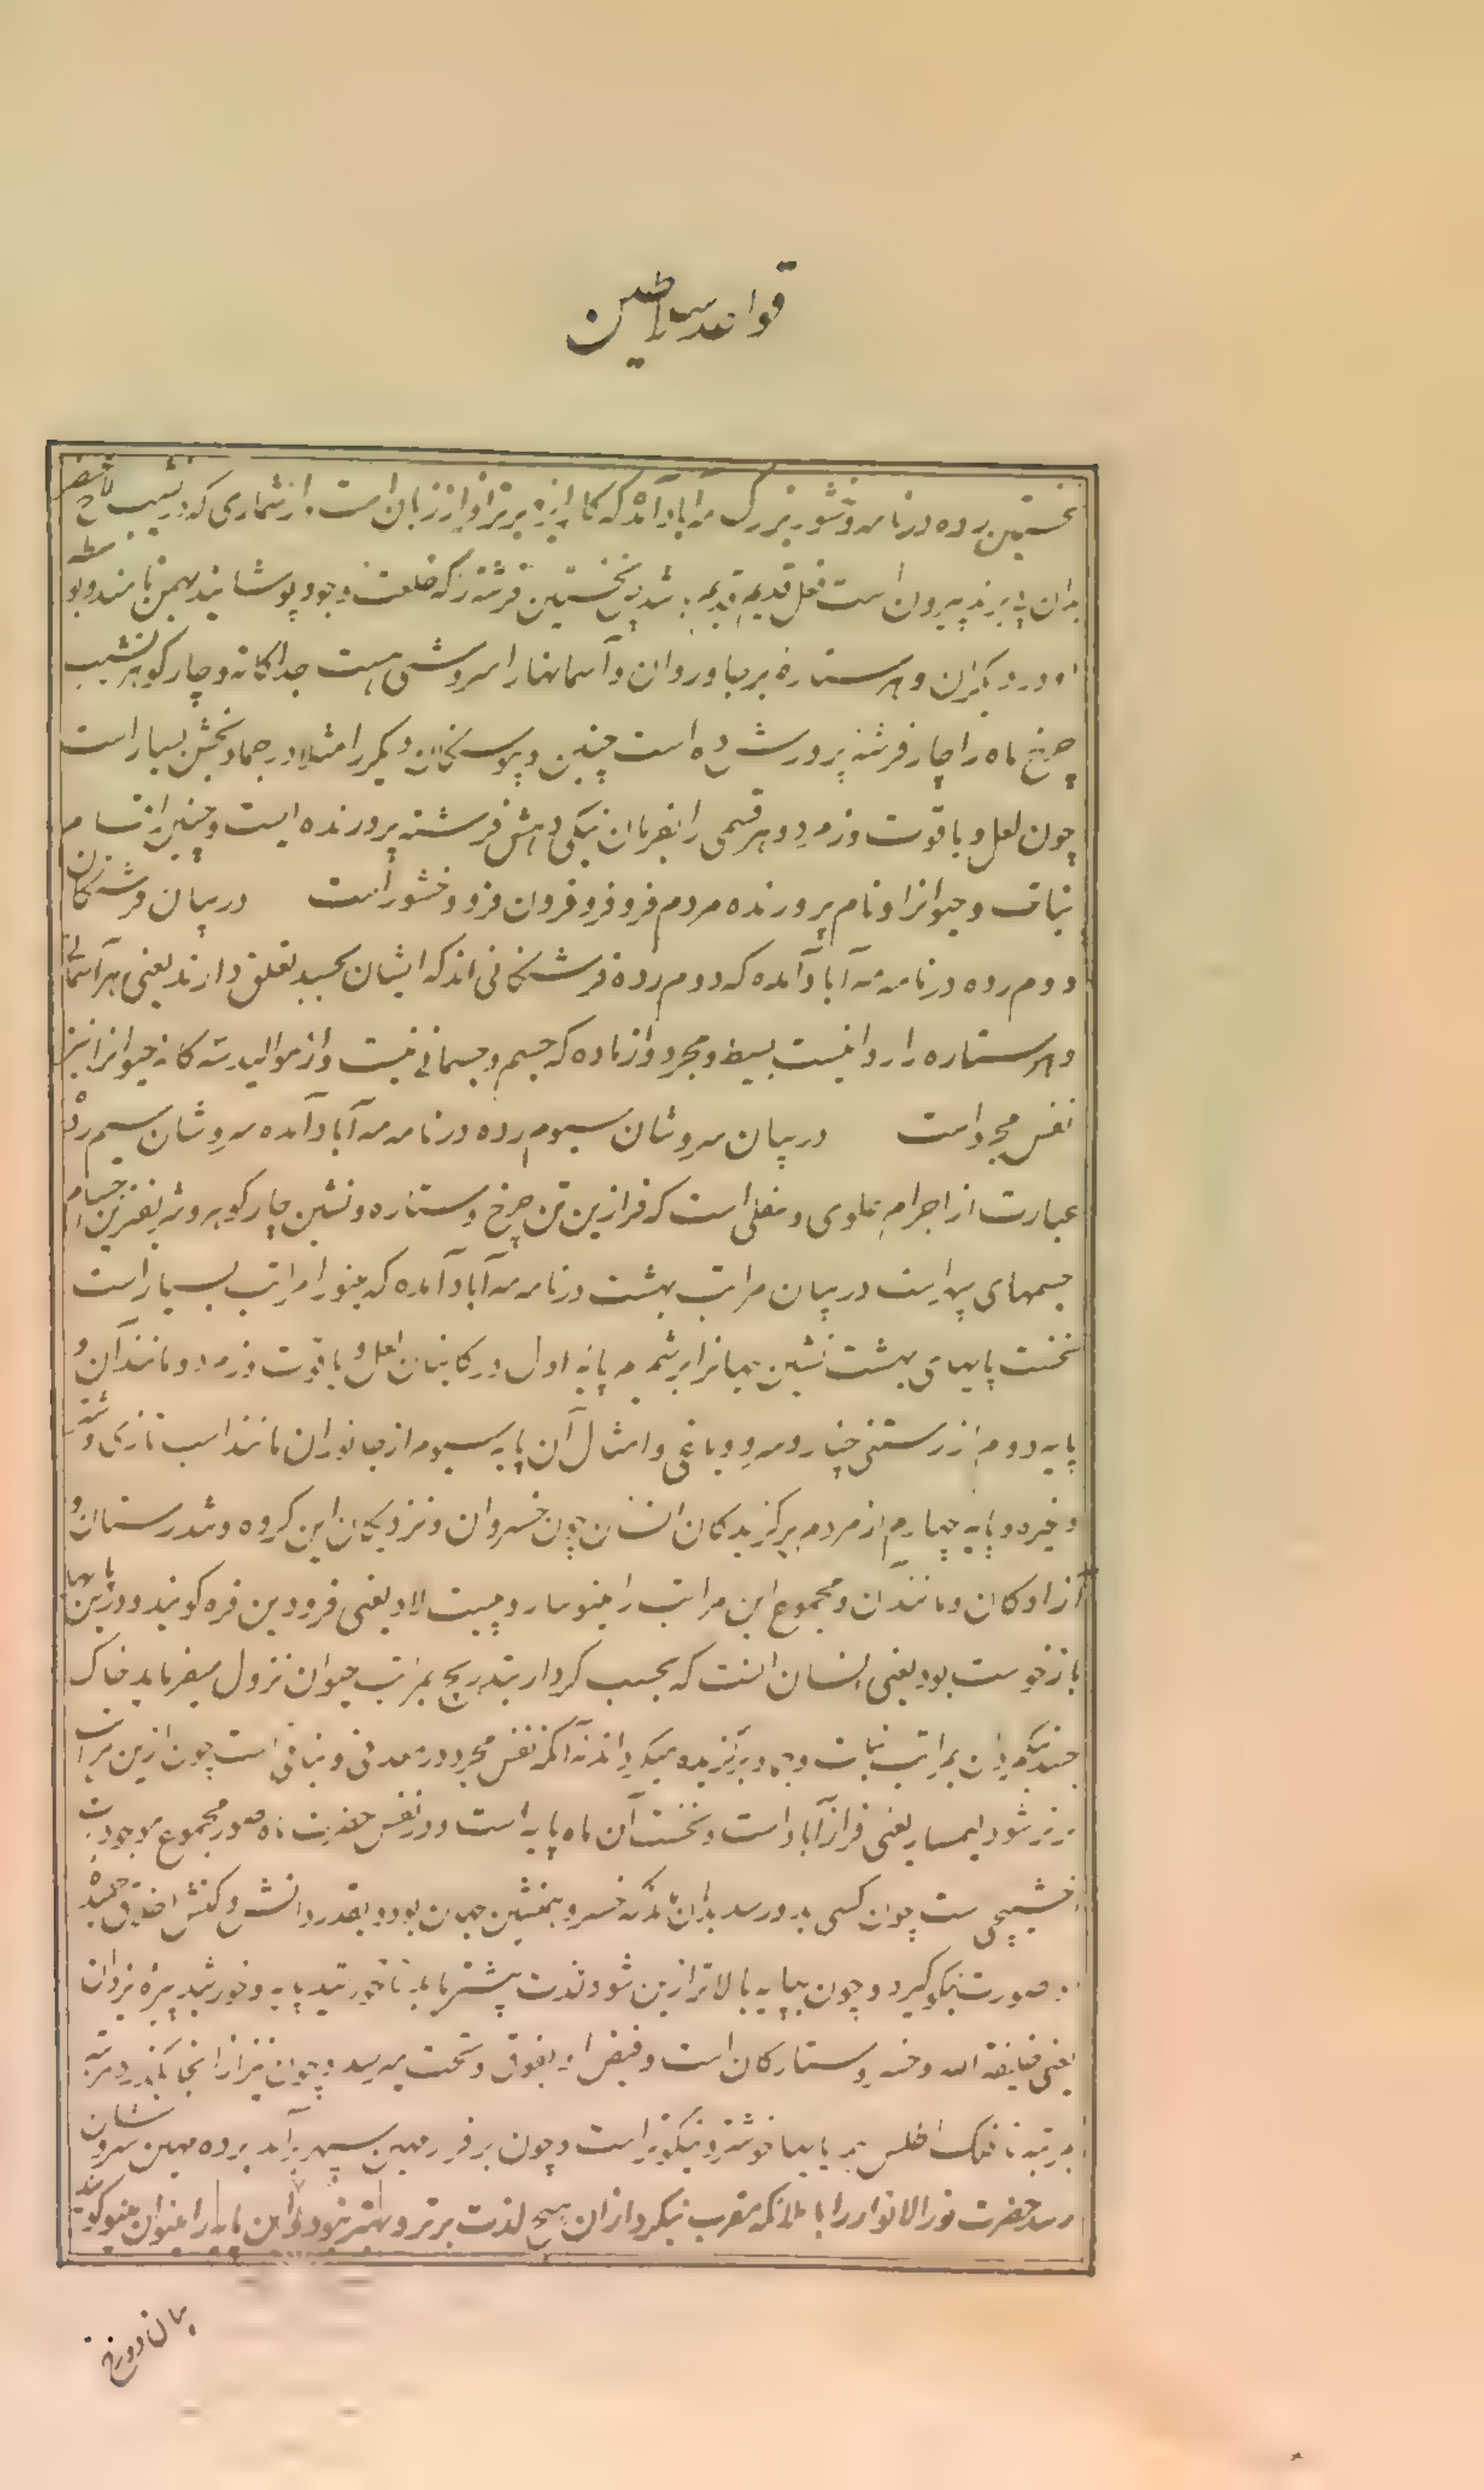 قواعد سلاطین
نخستین رده در نامه وخشور بزرگ مه آباد آمده که کار ایزد برتر از زبان است و از شماری که در نشیب
بدان پذیرند بیرون است فعل قدیم قدیم باشد نخستین فرشته را که خلعت وجود پوشانید بهمن نامند و بو
او در دیگران و هر ستاره برجا و روان و آسمانها را سروشی هست جداگانه و چار گوهر نشیب
چرخ ماه را چار فرشته پرورش ده است چنین و پیوستگان دیگر را مثلا در جماد بخش بسیار است
چون لعل و یاقوت و زمرد و هر قسمی را بفرمان نیکی دهش فرشته پرورنده ایست و چنین اقسام
نبات و حیوانرا و نام پرورنده مردم فرو فرو فرون فرو وخشور است در بیان فرشتگان
دوم رده در نامه مه آباد آمده که دوم رده فرشتگانی اند که ایشان بجسد تعلق دارند یعنی هر آسمانی
و هر ستاره را روانیست بسیط و مجرد و از ماده که جسم و جسمانی نیست و از موالید سه گانه حیوانرا نیز
نفس مجرد است در بیان سروشان سیوم رده در نامه مه آباد آمده سروشان سیم رده
عبارت از اجرام علوی و سفلی است که فرازین تن چرخ و ستاره و نشین چار گوهر و شریفترین اجسام
جسمهای سپهر است در بیان مراتب بهشت در نامه مه آباد آمده که مینو را مراتب بسیار است
نخست پایهای بهشت نشین جهانرا برشمرم پایه اول در کانیان لعل و یاقوت و زمرد و مانند آن و
پایه دوم از رستنی چنار و سرو و باغی و امثال آن پایه سیوم از جانوران مانند اسب تازی و شتر
و غیره و پایه چهارم از مردم برگزیدگان انسان چون خسروان و نزدیکان این گروه و تندرستان و
آزادگان و مانند آن و مجموع این مراتب را مینوسار و چیست لاد یعنی فرودین فره گویند و درین پایها
بازخواست بود یعنی انسان است که بحسب کردار بتدریج بمراتب حیوان نزول میفرماید خاک
جسد نیکوان بمراتب نبات و جماد برگزیده میگرداند نه آنکه نفس مجرد در معدنی و نباتی است چون ازین مراتب
برتر شود لیمسار یعنی فراز آباد است و نخست آن ماه پایه است و در نفس حضرت ماه صور مجموع موجودات
آخشیجی ست چون کسی بدو رسد بدان ماند که خسرو همنشین جهان بود و بقدر دانش و کنش اخلاق حمیده
صورت نیکو گیرد و چون بپایه بالاتر ازین شود لذت بیشتر یابد تا خورشید پایه و خورشید پیره یزدان
یعنی خلیفة الله و خسرو ستارگان است و فیض او بفوق و تحت میرسد و چون نیز از انجا بگذرد مرتبه
بمرتبه تا فلک اطلس هر پایها خوشتر و نیکوتر است و چون بر فراز مهین سپهر برآمد برده مهین سروشان
رسد حضرت نور الانوار را با ملائکه مقرب نیگرد از ان هیچ لذت برتر و بهتر نبود و این پایه را مینوان مینو گویند
بیان دوزخ